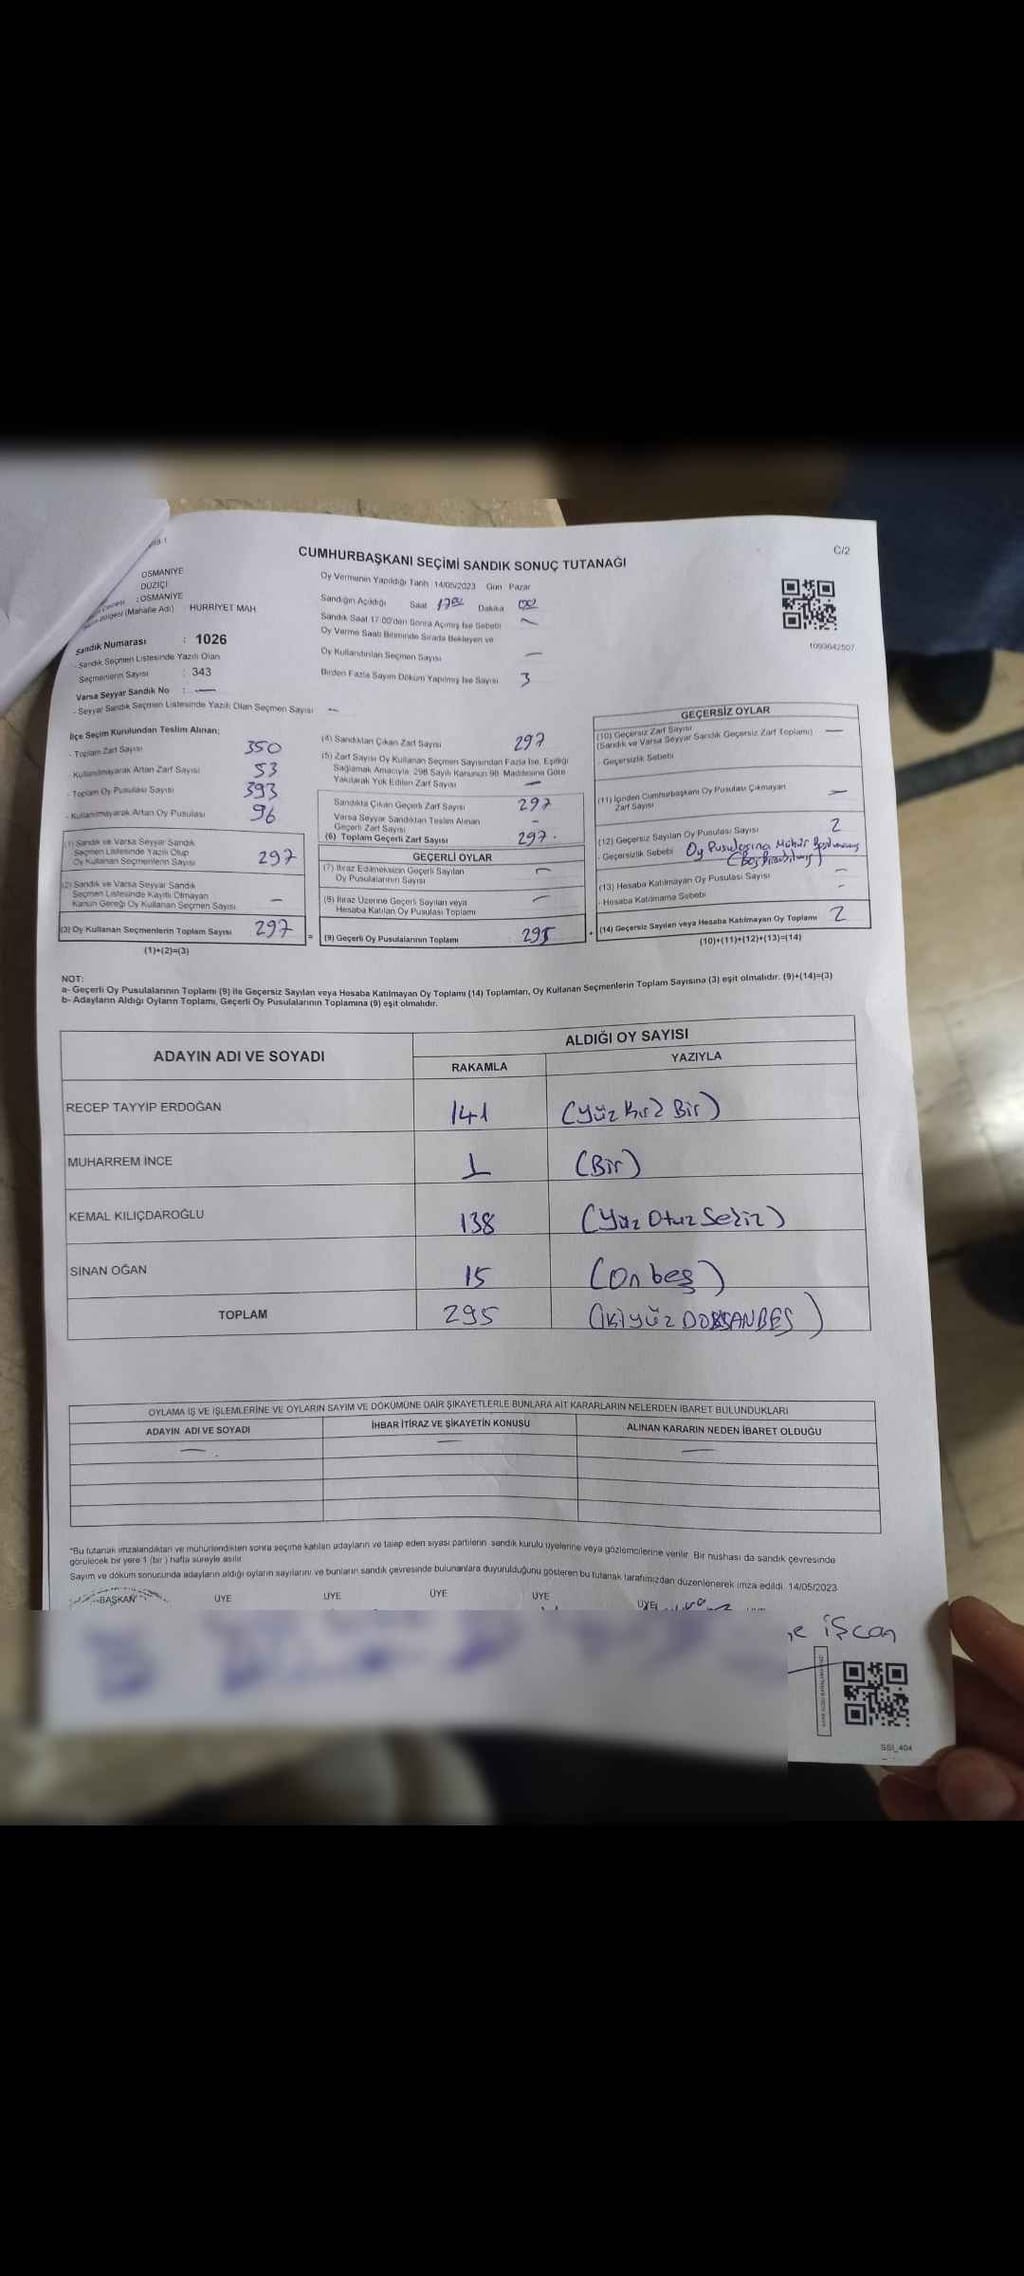 C/2
CUMHURBAŞKANI SEÇİMİ SANDIK SONUÇ TUTANAĞI
OSMANİYE
DÜZİÇİ
: OSMANİYE
(Mahalle Adı) : HÜRRİYET MAH
Oy Vermenin Yapıldığı Tarih 14/05/2023 Gün Pazar
Sandığın Açıldığı Saat 17 00 Dakika 00
Sandık Saat 17.00'den Sonra Açılmış İse Sebebi
Oy Verme Saati Bitiminde Sırada Bekleyen ve
Oy Kullandırılan Seçmen Sayısı —
Birden Fazla Sayım Döküm Yapılmış İse Sayısı 3
1093642507
Sandık Numarası : 1026
- Sandık Seçmen Listesinde Yazılı Olan
Seçmenlerin Sayısı : 343
Varsa Seyyar Sandık No : —
- Seyyar Sandık Seçmen Listesinde Yazılı Olan Seçmen Sayısı —
İlçe Seçim Kurulundan Teslim Alınan;
- Toplam Zarf Sayısı 350
- Kullanılmayarak Artan Zarf Sayısı 53
- Toplam Oy Pusulası Sayısı 393
- Kullanılmayarak Artan Oy Pusulası 96
(1) Sandık ve Varsa Seyyar Sandık
Seçmen Listesinde Yazılı Olup
Oy Kullanan Seçmenlerin Sayısı 297
(2) Sandık ve Varsa Seyyar Sandık
Seçmen Listesinde Kayıtlı Olmayan
Kanun Gereği Oy Kullanan Seçmen Sayısı —
(3) Oy Kullanan Seçmenlerin Toplam Sayısı 297
(1)+(2)=(3)
(4) Sandıktan Çıkan Zarf Sayısı 297
(5) Zarf Sayısı Oy Kullanan Seçmen Sayısından Fazla İse, Eşitliği
Sağlamak Amacıyla, 298 Sayılı Kanunun 98. Maddesine Göre
Yakılarak Yok Edilen Zarf Sayısı —
Sandıkta Çıkan Geçerli Zarf Sayısı 297
Varsa Seyyar Sandıktan Teslim Alınan
Geçerli Zarf Sayısı -
(6) Toplam Geçerli Zarf Sayısı 297
GEÇERLİ OYLAR
(7) İtiraz Edilmeksizin Geçerli Sayılan
Oy Pusulalarının Sayısı —
(8) İtiraz Üzerine Geçerli Sayılan veya
Hesaba Katılan Oy Pusulası Toplamı —
= (9) Geçerli Oy Pusulalarının Toplamı : 295
GEÇERSİZ OYLAR
(10) Geçersiz Zarf Sayısı —
(Sandık ve Varsa Seyyar Sandık Geçersiz Zarf Toplamı)
- Geçersizlik Sebebi
(11) İçinden Cumhurbaşkanı Oy Pusulası Çıkmayan
Zarf Sayısı —
(12) Geçersiz Sayılan Oy Pusulası Sayısı 2
- Geçersizlik Sebebi Oy Pusulasına Mühür Basılmamış
(13) Hesaba Katılmayan Oy Pusulası Sayısı —
- Hesaba Katılmama Sebebi -
+ (14) Geçersiz Sayılan veya Hesaba Katılmayan Oy Toplamı 2
(10)+(11)+(12)+(13)=(14)
NOT:
a- Geçerli Oy Pusulalarının Toplamı (9) ile Geçersiz Sayılan veya Hesaba Katılmayan Oy Toplamı (14) Toplamları, Oy Kullanan Seçmenlerin Toplam Sayısına (3) eşit olmalıdır. (9)+(14)=(3)
b- Adayların Aldığı Oyların Toplamı, Geçerli Oy Pusulalarının Toplamına (9) eşit olmalıdır.
ADAYIN ADI VE SOYADI ALDIĞI OY SAYISI
RAKAMLA YAZIYLA
RECEP TAYYİP ERDOĞAN 141 (Yüz Kırk Bir)
MUHARREM İNCE 1 (Bir)
KEMAL KILIÇDAROĞLU 138 (Yüz Otuz Sekiz)
SİNAN OĞAN 15 (On beş)
TOPLAM 295 (İkiyüz DOKSANBEŞ)
OYLAMA İŞ VE İŞLEMLERİNE VE OYLARIN SAYIM VE DÖKÜMÜNE DAİR ŞİKAYETLERLE BUNLARA AİT KARARLARIN NELERDEN İBARET BULUNDUKLARI
ADAYIN ADI VE SOYADI İHBAR İTİRAZ VE ŞİKAYETİN KONUSU ALINAN KARARIN NEDEN İBARET OLDUĞU
— — —
*Bu tutanak imzalandıktan ve mühürlendikten sonra seçime katılan adayların ve talep eden siyasi partilerin sandık kurulu üyelerine veya gözlemcilerine verilir. Bir nüshası da sandık çevresinde
görülecek bir yere 1 (bir) hafta süreyle asılır.
Sayım ve döküm sonucunda adayların aldığı oyların sayılarını ve bunların sandık çevresinde bulunanlara duyurulduğunu gösteren bu tutanak tarafımızdan düzenlenerek imza edildi. 14/05/2023
BAŞKAN ÜYE ÜYE ÜYE ÜYE ÜYE
işcan
SSI_404